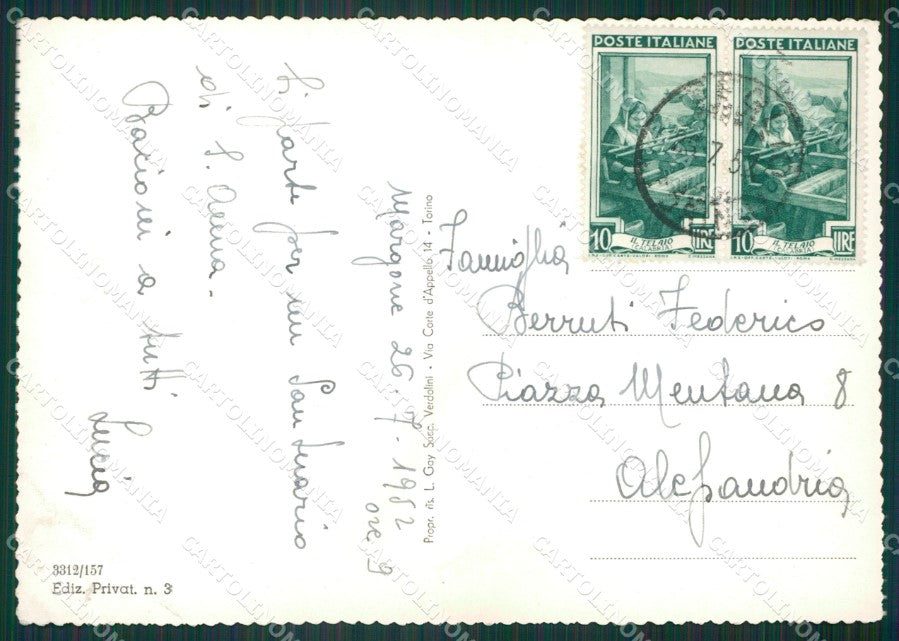 Margone 26.7.1952
ore 9
Si parte per un Santuario
di S. Anna.
Bacioni a tutti
Lucia
Propr. ris. L. Gay Succ. Verdolini - Via Corte d'Appello 14 - Torino
3312/157
Ediz. Privat. n. 3
POSTE ITALIANE
10 LIRE
IL TELAIO
(CALABRIA)
POSTE ITALIANE
10 LIRE
IL TELAIO
(CALABRIA)
Famiglia
Berruti Federico
Piazza Mentana 8
Alessandria
CARTOLINOMANIA